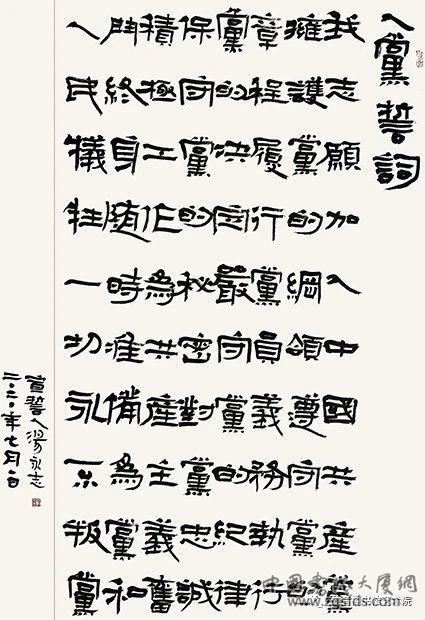 入黨誓詞
我志願加入中國共産黨
擁護黨的綱領遵守黨的
章程履行黨員義務執行
黨的決定嚴守黨的紀律
保守黨的秘密對黨忠誠
積極工作為共産主義奮
鬥終身随時准備為黨和
人民犧牲一切永不叛黨
宣誓人湯永志
二〇二〇年七月
中国书法大厦网